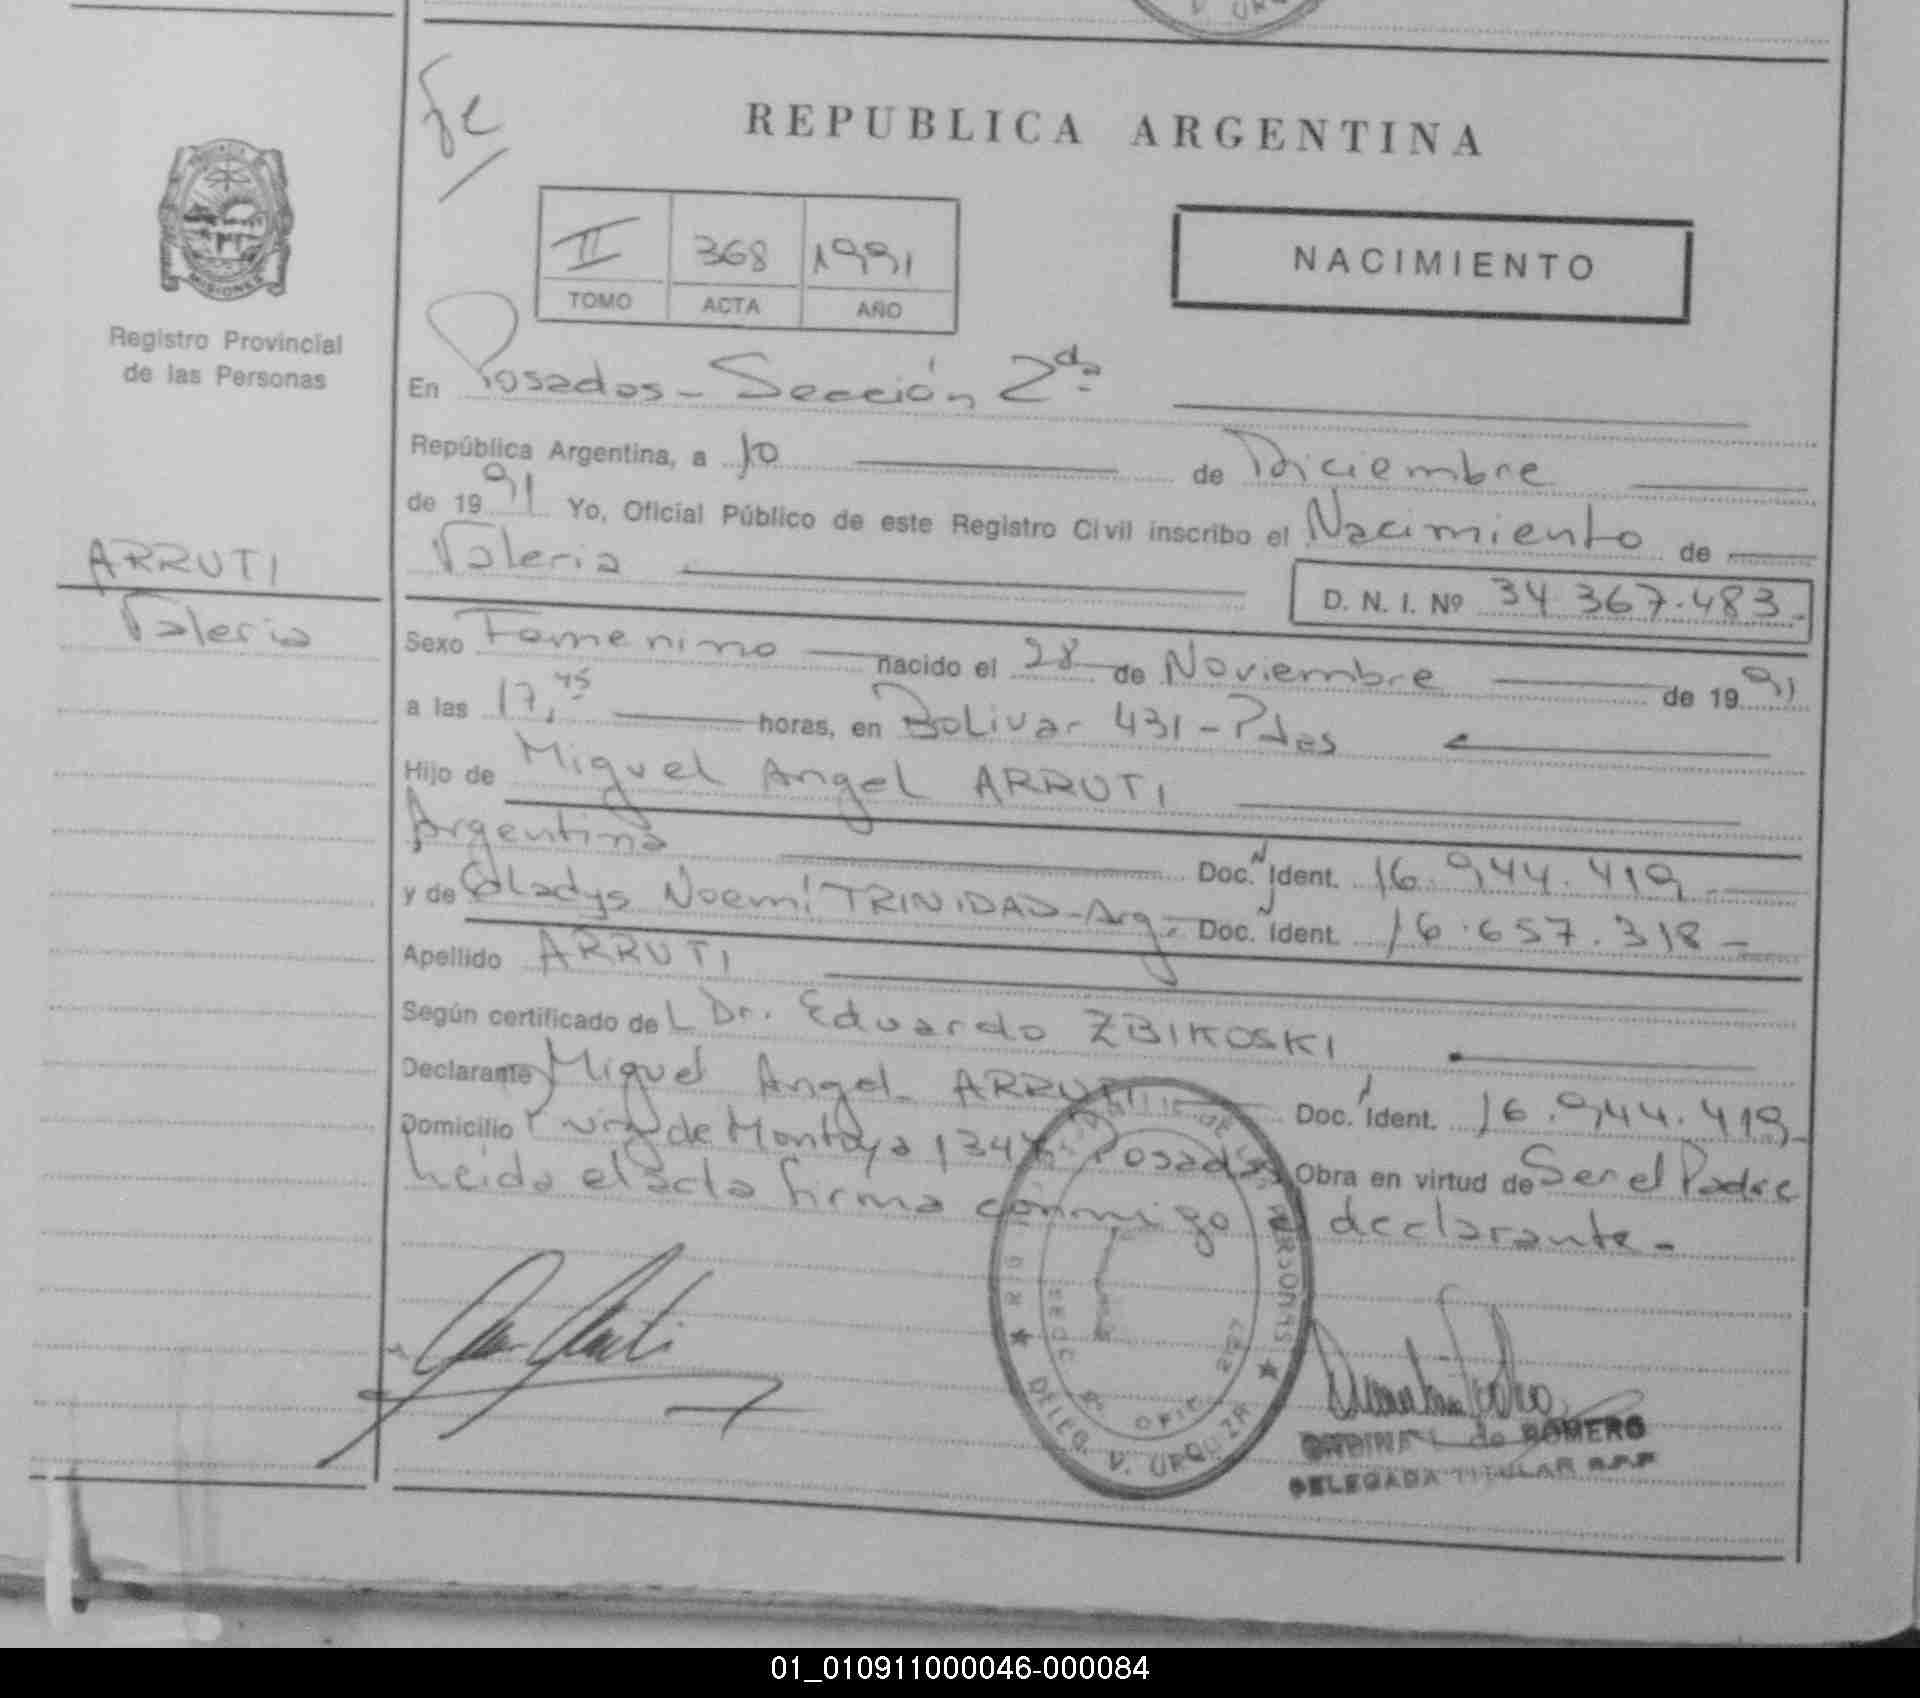 V. URQ
fe
REPUBLICA ARGENTINA
II 368 1991
TOMO ACTA AÑO
NACIMIENTO
MISIONES
Registro Provincial
de las Personas
En Posadas - Sección 2da
República Argentina, a 10 de Diciembre
de 1991 Yo, Oficial Público de este Registro Civil inscribo el Nacimiento de
Valeria
D. N. I. Nº 34.367.483.
ARRUTI
Valeria
Sexo Femenino nacido el 28 de Noviembre de 1991
a las 17,45 horas, en Bolivar 431 - Pdas
Hijo de Miguel Angel ARRUTI
Argentina Doc. Ident. 16.944.419
y de Gladys Noemí TRINIDAD - Arg. - Doc. Ident. 16.657.318 -
Apellido ARRUTI
Según certificado del Dr. Eduardo ZBIKOSKI
Declarante Miguel Angel ARRUTI Doc. Ident. 16.944.419
Domicilio de Montoya Posadas Obra en virtud de Ser el Padre
Leida el acta firma conmigo el declarante. -
PERSONAS
DELEG V. URQUIZA
de ROMERO
DELEGADA TITULAR R.P.P
01_010911000046-000084